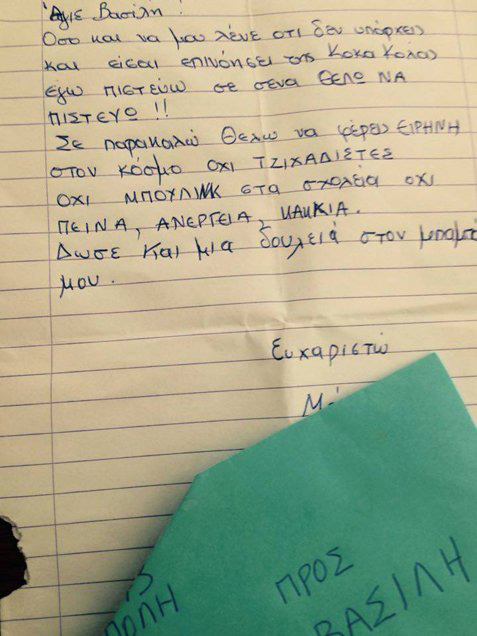 Άγιε Βασίλη!
Οσο και να μου λένε οτι δεν υπάρχεις
και είσαι επινόησει της Κοκα Κολας
εγω πιστεύω σε σενα ΘΕΛΩ ΝΑ
ΠΙΣΤΕΥΩ !!
Σε παρακαλώ θελω να φέρεις ΕΙΡΗΝΗ
στον κόσμο οχι ΤΖΙΧΑΔΙΣΤΕΣ
ΟΧΙ ΜΠΟΥΛΙΝΚ στα σχολεία οχι
ΠΕΙΝΑ, ΑΝΕΡΓΕΙΑ, ΚΑΚΚΙΑ.
Δωσε και μια δουλειά στον μπαμπά
μου.
Ευχαριστώ
ΠΡΟΣ
ΒΑΣΙΛΗ